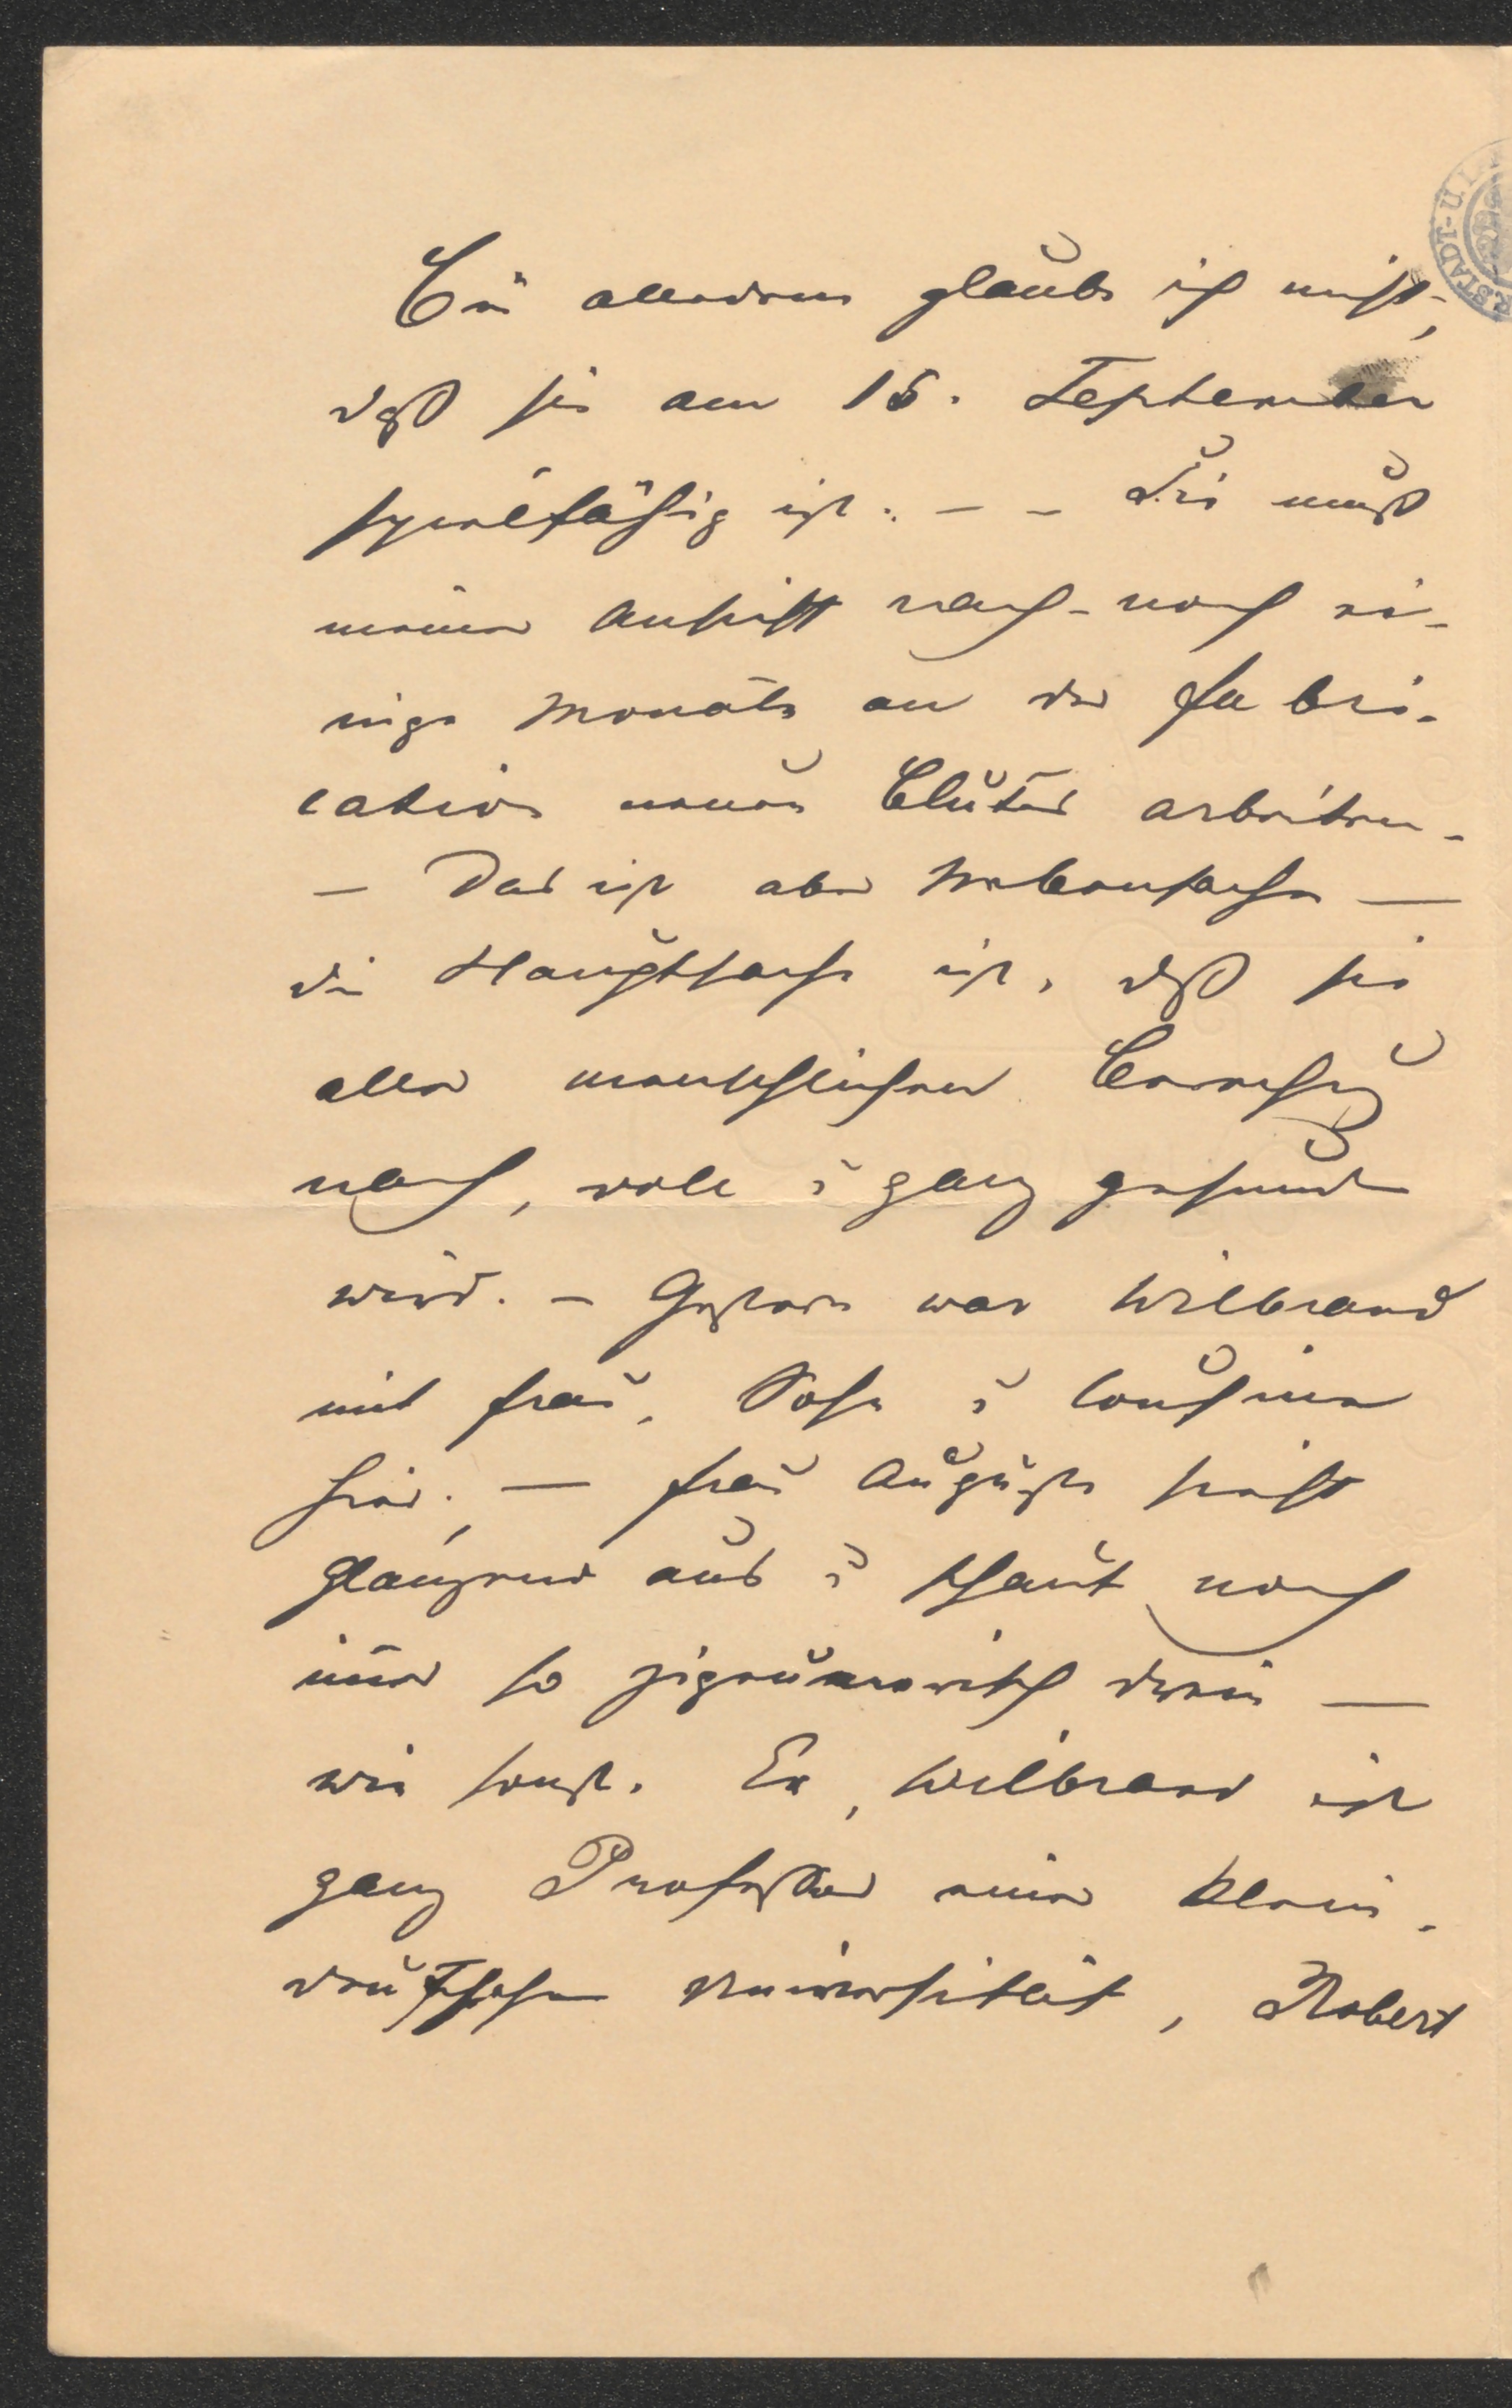 Bei alledem glaube ich nicht,
daß sie am 15. September
spielfähig ist. – – Sie muß
meiner Ansicht nach – noch ei-
nige Monate an der Fabri-
cation neuen Blutes arbeiten.
– Das ist aber Nebensache –
die Hauptsache ist, daß sie
aller menschlichen Berechng
nach, voll u ganz gesund
wird. – Gestern war Wilbrand
mit Frau, Sohn u Cousine
hier. – Frau Auguste sieht
glänzend aus u schaut noch
im̅er so zigeunerisch drein –
wie sonst. Er, Wilbrand ist
ganz Professor einer klein-
deutschen Universität, Robert
STADT-U